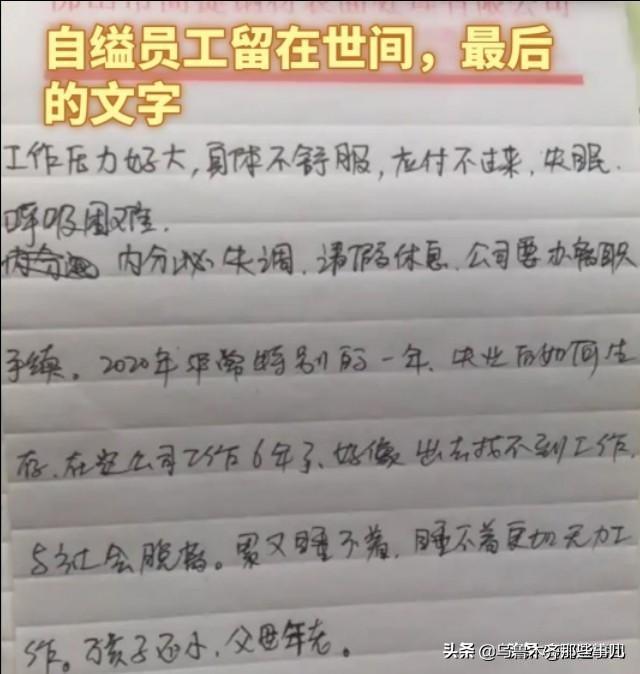 自缢员工留在世间，最后
的文字
工作压力好大，身体不舒服，应付不过来，失眠.
呼吸困难.
内分泌失调，请假休息，公司要办离职
手续。2020年非常特别的一年、失业后如何生
存、在公司工作6年了、好像出去找不到工作，
与社会脱轨。累又睡不着，睡不着更切无力工
作。孩子还小，父母年老。
头条 @乌鲁木齐那些事儿